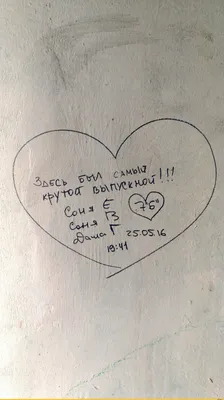 Здесь был самый
крутой выпускной!!!
Соня Е
Соня В
Даша Г
7б"
25.05.16
19:41